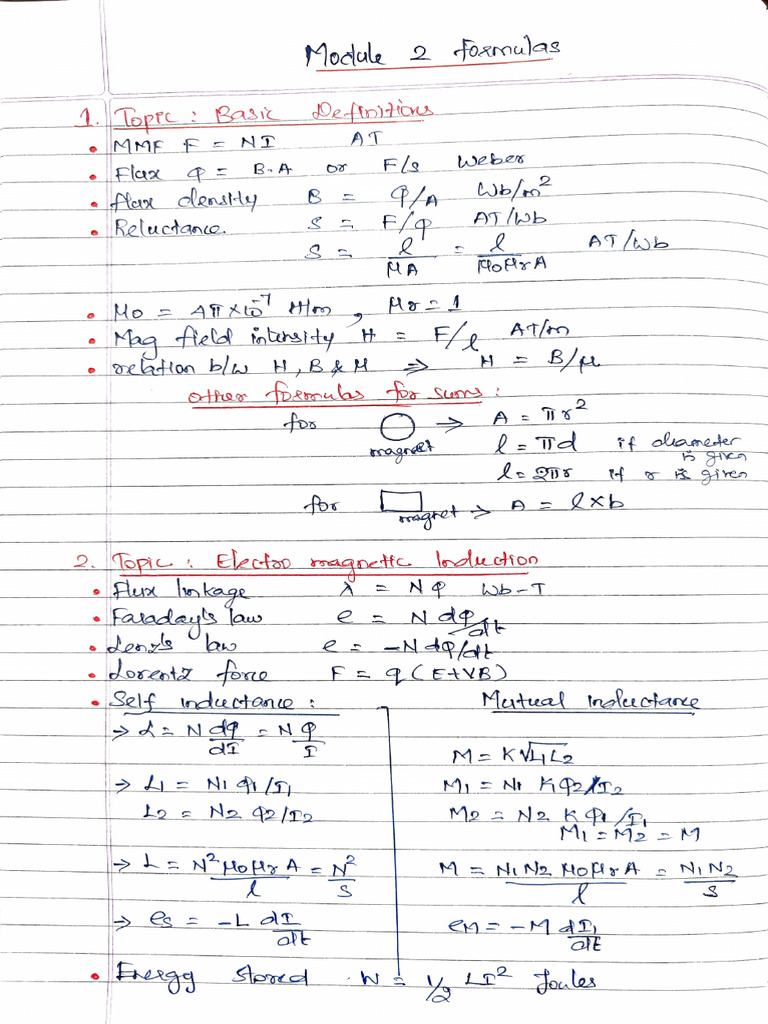 Module 2 formulas
1. Topic : Basic Definitions
• MMF F = NI AT
• Flux φ = B.A or F/s Weber
• flux density B = φ/A Wb/m²
• Reluctance. S = F/φ AT/Wb
S = l/μA = l/μ0μrA AT/Wb
• μ0 = 4π×10⁻⁷ H/m, μr = 1
• Mag field intensity H = F/l AT/m
• relation b/w H, B & μ ⇒ H = B/μ
other formulas for sums :
for magnet → A = πr²
l = πd if diameter is given
l = 2πr if r is given
for magnet → A = l×b
2. Topic : Electro magnetic Induction
• Flux linkage λ = Nφ Wb-T
• Faraday's law e = N dφ/dt
• Lenz's law e = -N dφ/dt
• Lorentz force F = q(E+VB)
• Self inductance : Mutual inductance
→ L = N dφ/dI = Nφ/I
M = K√L1L2
→ L1 = N1 φ1/I1 M1 = N1 Kφ2/I2
L2 = N2 φ2/I2 M2 = N2 Kφ1/I1
M1 = M2 = M
→ L = N²μ0μrA/l = N²/S M = N1N2μ0μrA/l = N1N2/S
→ es = -L dI/dt eM = -M dI1/dt
• Energy stored W = 1/2 LI² Joules